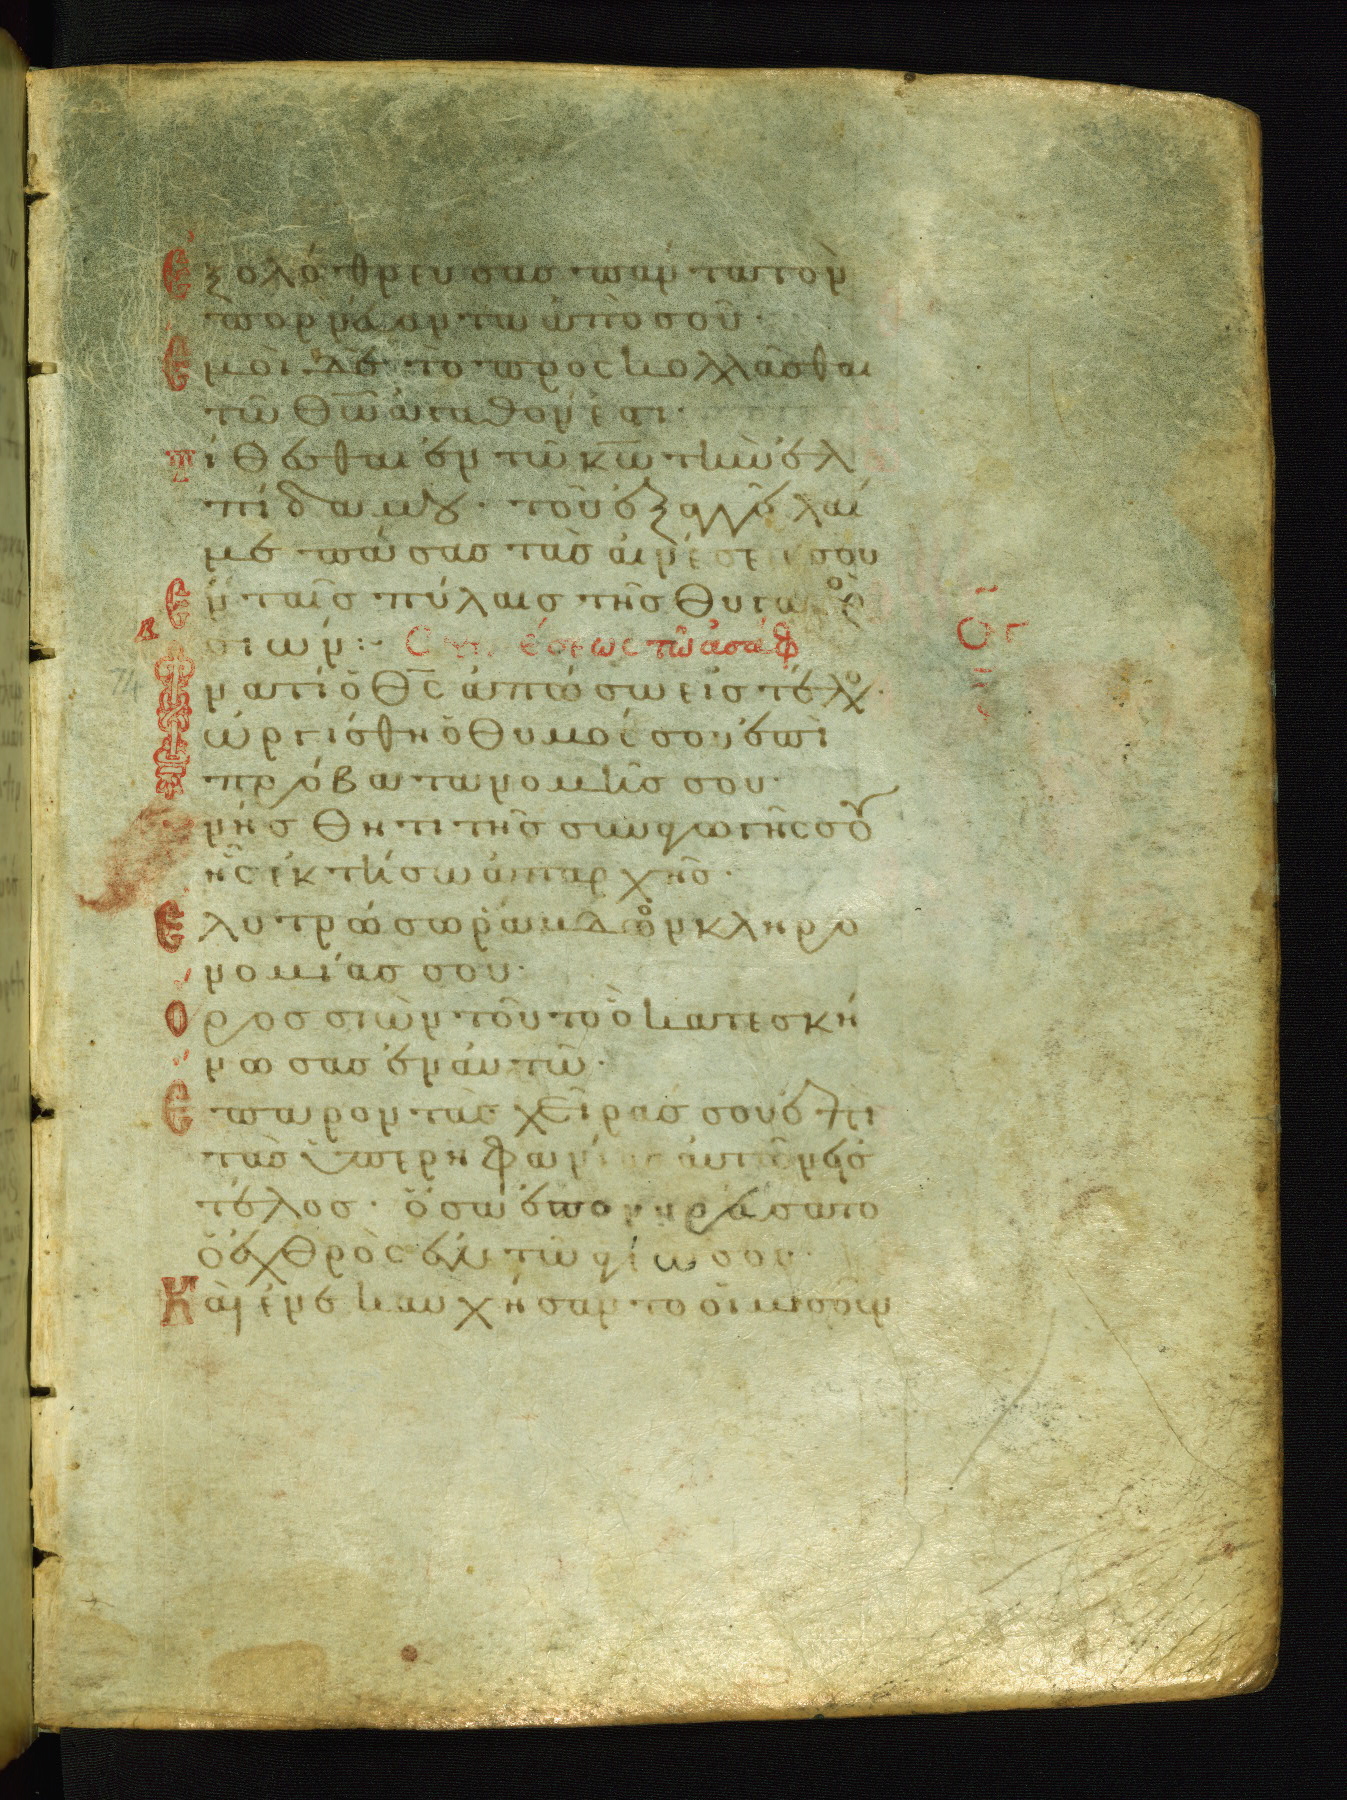 Ἐξολόθρευσας πάντα τὸν
πορνέυοντα ἀπὸ σοῦ·
Ἐμοὶ δὲ τὸ προσκολλᾶσθαι
τῶ θῶ ἀγαθόν ἐστι·
τίθεσθαι ἐν τῶ κω τὴν ἐλ
πίδα μου· τοῦ ἐξαγγεῖλαί
με πάσας τὰς αἰνέσεις σου
Ἐν ταῖς πύλαις τῆς θυγατρὸς
σιών:- Συνέσεως τῶ ἀσάφ
Ἵνατί ὁ θς ἀπώσω εἰς τέλος·
ὠργίσθη ὁ θυμός σου ἐπὶ
πρόβατα νομῆς σου·
μνήσθητι τῆς συναγωγῆς σου
ἧς ἐκτήσω ἀπαρχῆς·
Ἐλυτρώσω ράβδον κληρο
νομίας σου·
Ὄρος σιὼν τοῦτο ὃ κατεσκή
νωσας ἐν αὐτῶ·
Ἔπαρον τὰς χεῖρας σου ἐπὶ
τὰς ὑπερηφανίας αὐτῶν εἰς
τέλος· ὅσα ἐπονηρέυσατο
ὁ ἐχθρὸς ἐν τῶ ἁγίω σου·
Καὶ ἐνεκαυχήσαντο οἱ μισοῦν
ογ
74